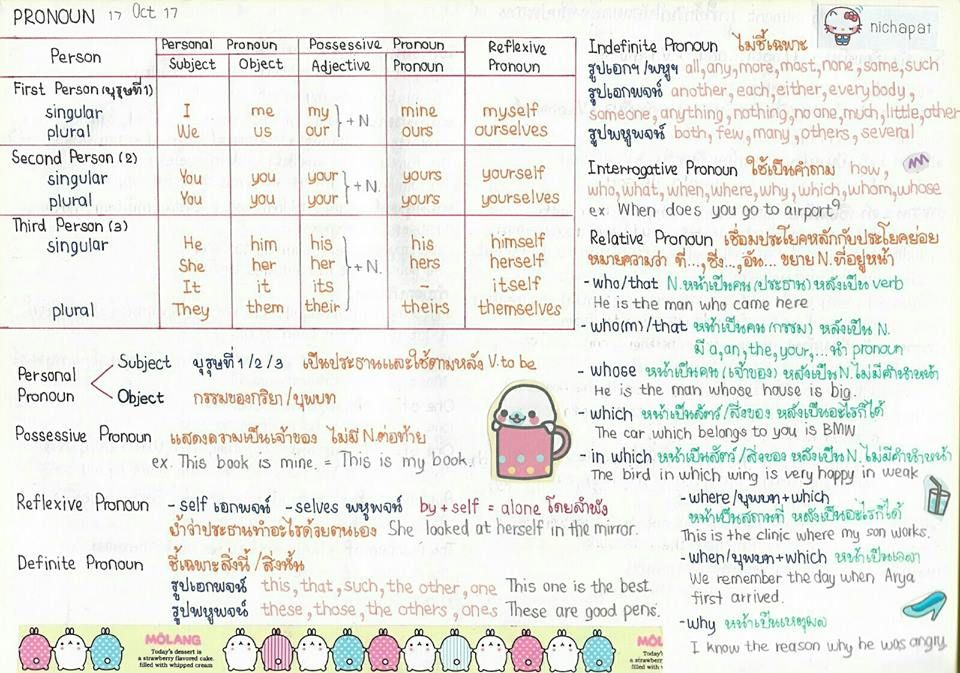 PRONOUN 17 Oct 17
nichapat
Person
Personal Pronoun
Possessive Pronoun
Reflexive Pronoun
Subject Object Adjective Pronoun
First Person (บุรุษที่ 1)
singular I me my mine myself
plural We us our ours ourselves
+ N.
Second Person (2)
singular You you your yours yourself
plural You you your yours yourselves
+ N.
Third Person (3)
singular He him his his himself
She her her hers herself
It it its - itself
plural They them their theirs themselves
+ N.
Personal Pronoun
Subject บุรุษที่ 1 / 2 / 3 เป็นประธานและใช้ตามหลัง V. to be
Object กรรมของกริยา / บุพบท
Possessive Pronoun แสดงความเป็นเจ้าของ ไม่มี N. ต่อท้าย
ex. This book is mine. = This is my book.
Reflexive Pronoun - self เอกพจน์ - selves พหูพจน์ by + self = alone โดยลำพัง
ย้ำว่าประธานทำอะไรด้วยตนเอง She looked at herself in the mirror.
Definite Pronoun ชี้เฉพาะสิ่งนี้ / สิ่งนั้น
รูปเอกพจน์ this, that, such, the other, one This one is the best.
รูปพหูพจน์ these, those, the others, ones These are good pens.
MOLANG
Today's dessert is
a strawberry flavored cake
filled with whipped cream
MOL
Today's
a strawberry
filled with
Indefinite Pronoun ไม่ชี้เฉพาะ
รูปเอกฯ / พหูฯ all, any, more, most, none, some, such
รูปเอกพจน์ another, each, either, everybody,
someone, anything, nothing, no one, much, little, other
รูปพหูพจน์ both, few, many, others, several
Interrogative Pronoun ใช้เป็นคำถาม how,
who, what, when, where, why, which, whom, whose
ex When does you go to airport?
Relative Pronoun เชื่อมประโยคหลักกับประโยคย่อย
หมายความว่า ที่..., ซึ่ง..., อัน... ขยาย N. ที่อยู่หน้า
- who/that N. หน้าเป็นคน (ประธาน) หลังเป็น verb
He is the man who came here.
- who(m)/that หน้าเป็นคน (กรรม) หลังเป็น N.
มี a, an, the, your, ... นำ pronoun
- whose หน้าเป็นคน (เจ้าของ) หลังเป็น N. ไม่มีคำนำหน้า
He is the man whose house is big.
- which หน้าเป็นสัตว์ / สิ่งของ หลังเป็นอะไรก็ได้
The car which belongs to you is BMW
- in which หน้าเป็นสัตว์ / สิ่งของ หลังเป็น N. ไม่มีคำนำหน้า
The bird in which wing is very happy in weak
- where / บุพบท + which
หน้าเป็นสถานที่ หลังเป็นอะไรก็ได้
This is the clinic where my son works.
- when / บุพบท + which หน้าเป็นเวลา
We remember the day when Arya
first arrived.
- why หน้าเป็นเหตุผล
I know the reason why he was angry.